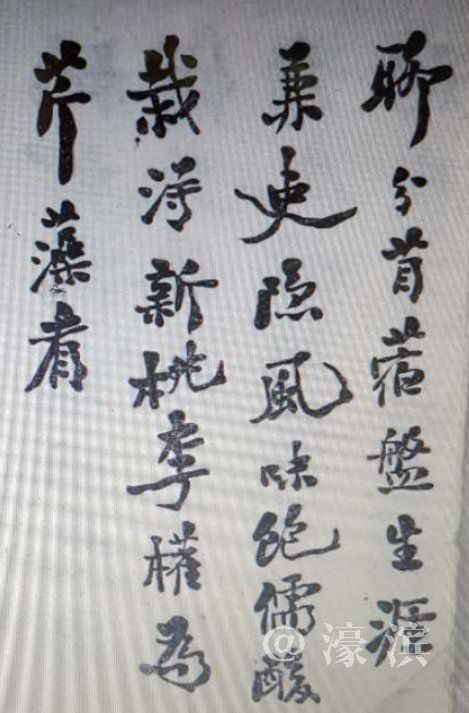 聊分苜蓿盤生涯
兼吏隐風味飽儒酸
栽得新桃李權為
芹藻看
@濠滨